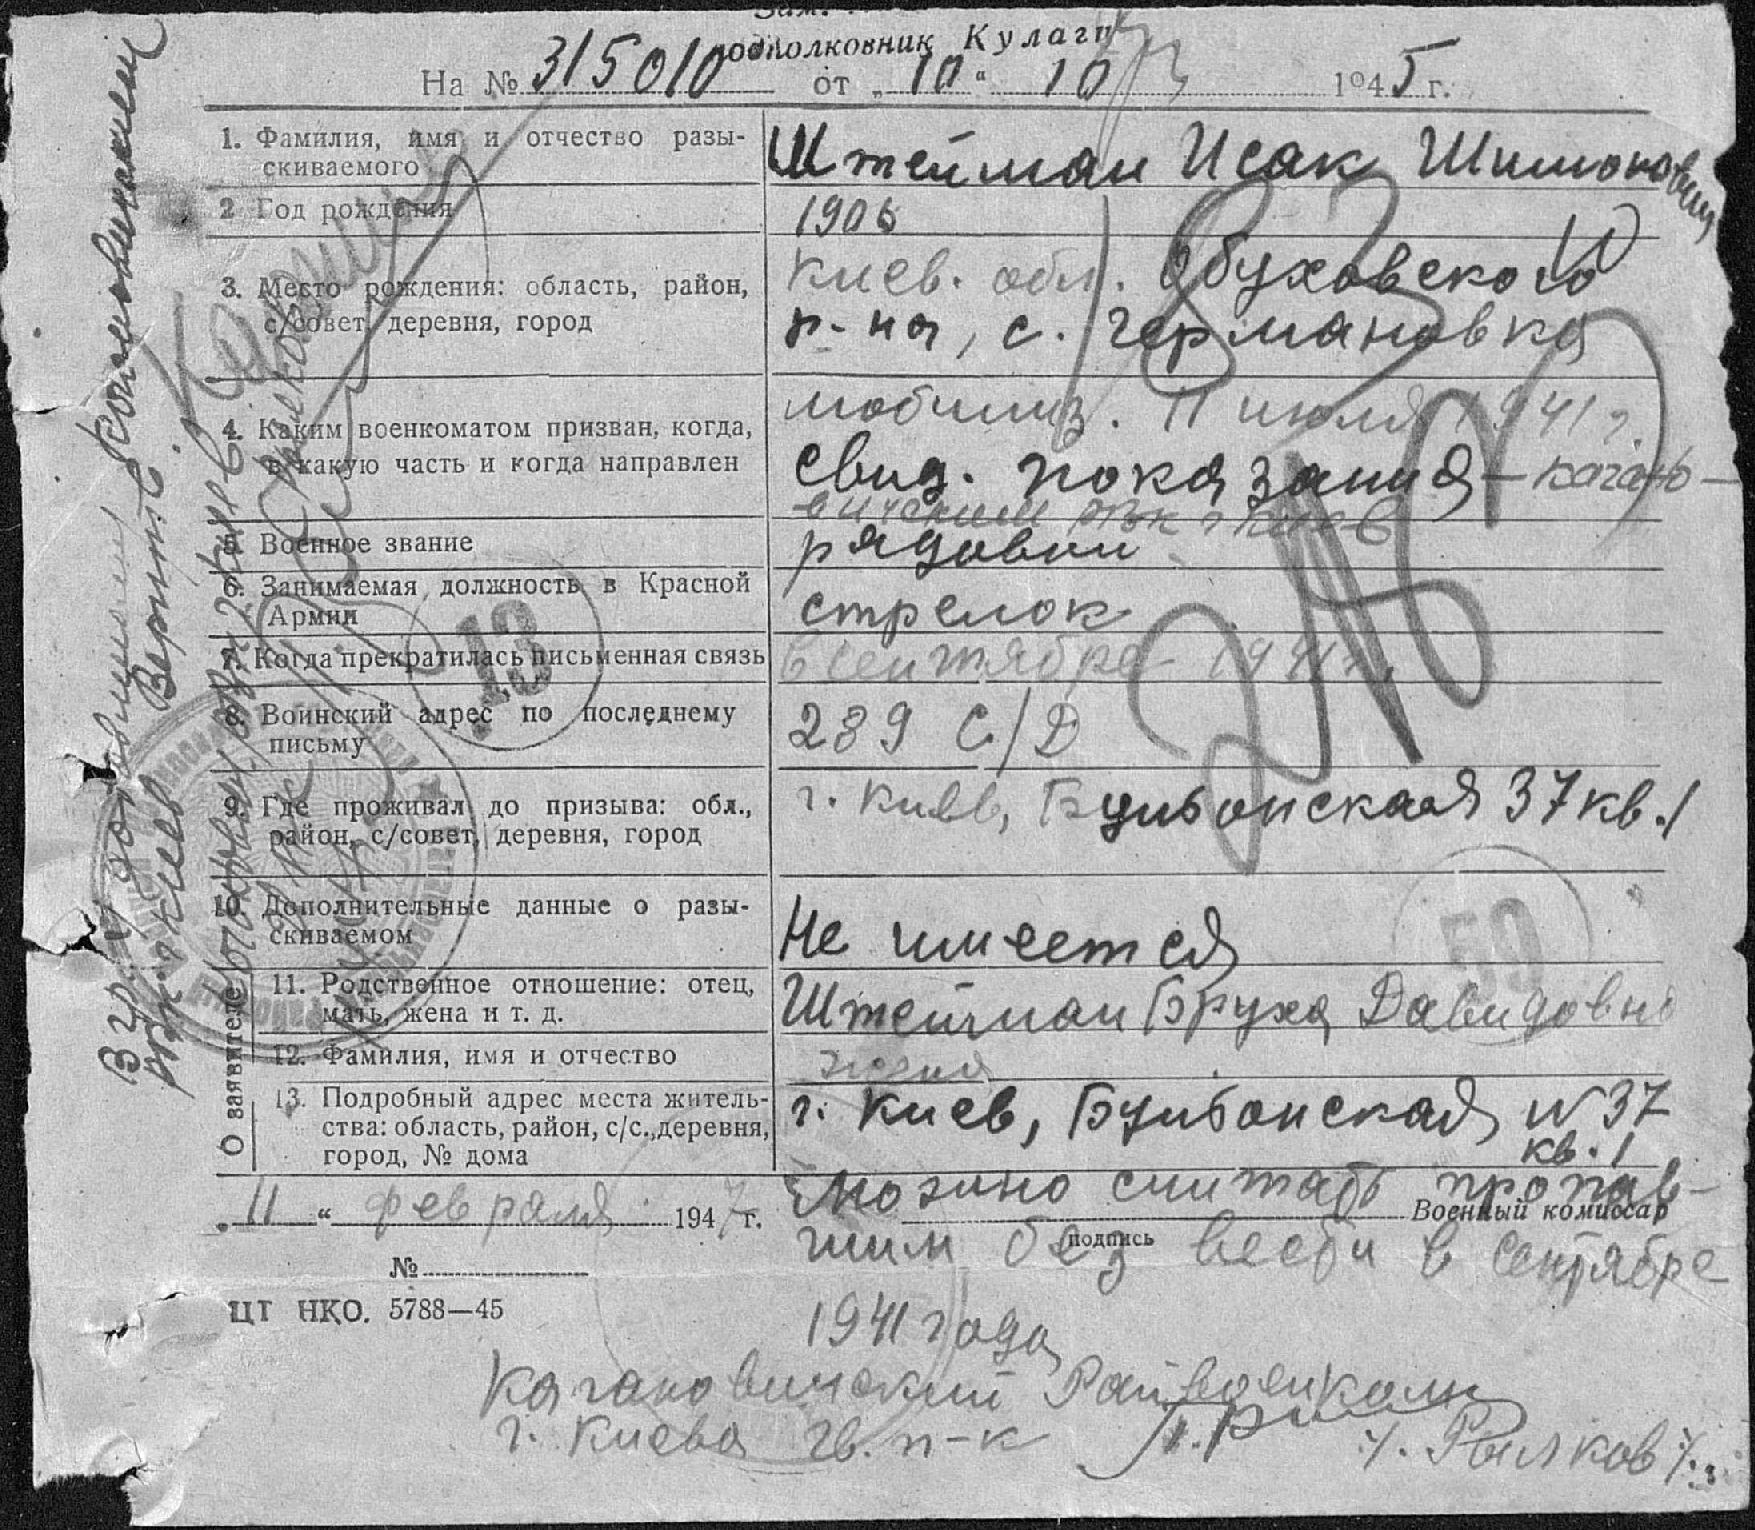 подполковник Кулаг
На № 315010 от „10“ 10 1945 г.
1. Фамилия, имя и отчество разы-
скиваемого
Штейман Исак Шимонович
2 Год рождения
1906
3. Место рождения: область, район,
с/совет, деревня, город
Киев. обл. Обуховского
р-на, с. Германовка
4. Каким военкоматом призван, когда,
в какую часть и когда направлен
мобилиз. 11 июля 1941 г.
Свид. показания – Кагано-
вичским рвк г Киев
5. Военное звание
рядовой
6. Занимаемая должность в Красной
Армии
стрелок
7. Когда прекратилась письменная связь
в сентябре 1941 г.
8. Воинский адрес по последнему
письму
239 С/Д
9. Где проживал до призыва: обл.,
район, с/совет, деревня, город
г. Киев, Бульонская 37 кв. 1
10. Дополнительные данные о разы-
скиваемом
Не имеется
О заявителе
11. Родственное отношение: отец,
мать, жена и т. д.
Штейман Бруха Давидовна
12. Фамилия, имя и отчество
жена
13. Подробный адрес места житель-
ства: область, район, с/с., деревня,
город, № дома
г. Киев, Бульонская N 37
кв. 1
„11“ февраля 1947 г.
Можно считать пропав-
Военный комиссар
шим без вести в сентябре
подпись
1941 года
№
ЦТ НКО. 5788—45
Кагановичский Райвоенком
г. Киева гв. п-к
Рылков
13
59